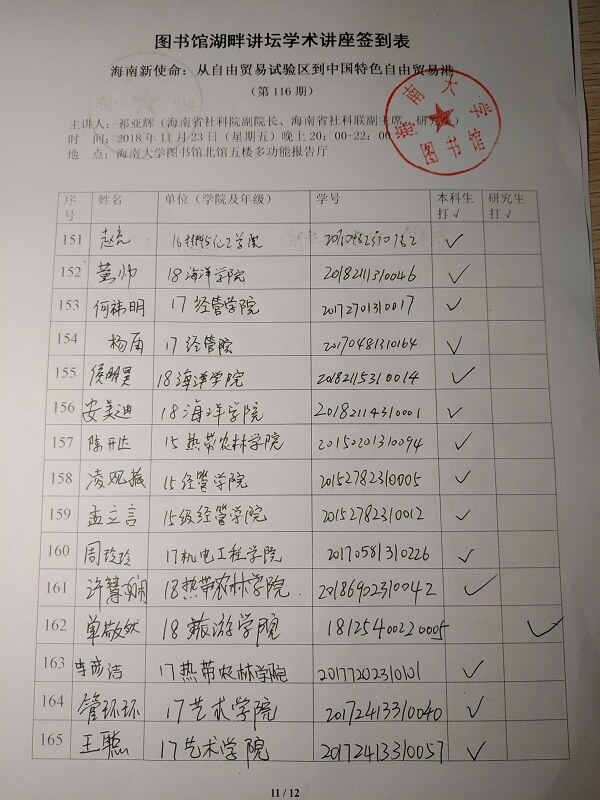 图书馆湖畔讲坛学术讲座签到表
海南新使命：从自由贸易试验区到中国特色自由贸易港
（第 116 期）
海南大学
图书馆
主讲人：祁亚辉（海南省社科院副院长、海南省社科联副主席、研究员）
时 间：2018 年 11 月 23 日（星期五）晚上 20：00-22：00
地 点：海南大学图书馆北馆五楼多功能报告厅
序号 姓名 单位（学院及年级） 学号 本科生打√ 研究生打√
151 赵亮 16 学院 √
152 董帅 18海洋学院 2018211310046 √
153 何祎明 17经管学院 20172701310017 √
154 杨雨 17经管院 20170481310164 √
155 侯明昊 18海洋学院 20182115310014 √
156 安美迪 18海洋学院 20182114310001 √
157 陈开达 15热带农林学院 20150201310094 √
158 凌观振 15经管学院 20152782310005 √
159 孟立言 15级经管学院 20152782310012 √
160 周玲玲 17机电工程学院 20170581310226 √
161 许慧娴 18热带农林学院 20186902310042 √
162 单敬然 18旅游学院 18125400220005 √
163 李彦洁 17热带农林学院 20177202310101 √
164 管环环 17艺术学院 20172413310040 √
165 王聪 17艺术学院 20172413310057 √
11 / 12